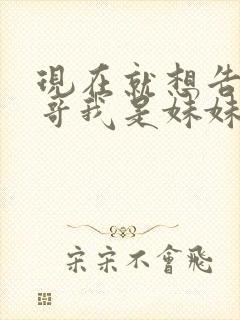 現在就想告
哥我是妹妹
宋宋不會飛